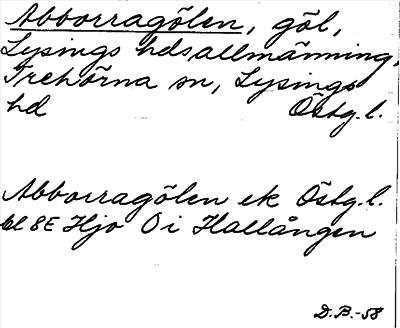 Abborragölen, göl,
Lysings hdsallmänning,
Trehörna sn, Lysings
hd Östg.l.
Abborragölen ek Östg.l.
bl 8E Hjo O i Hallången
D.B.-58